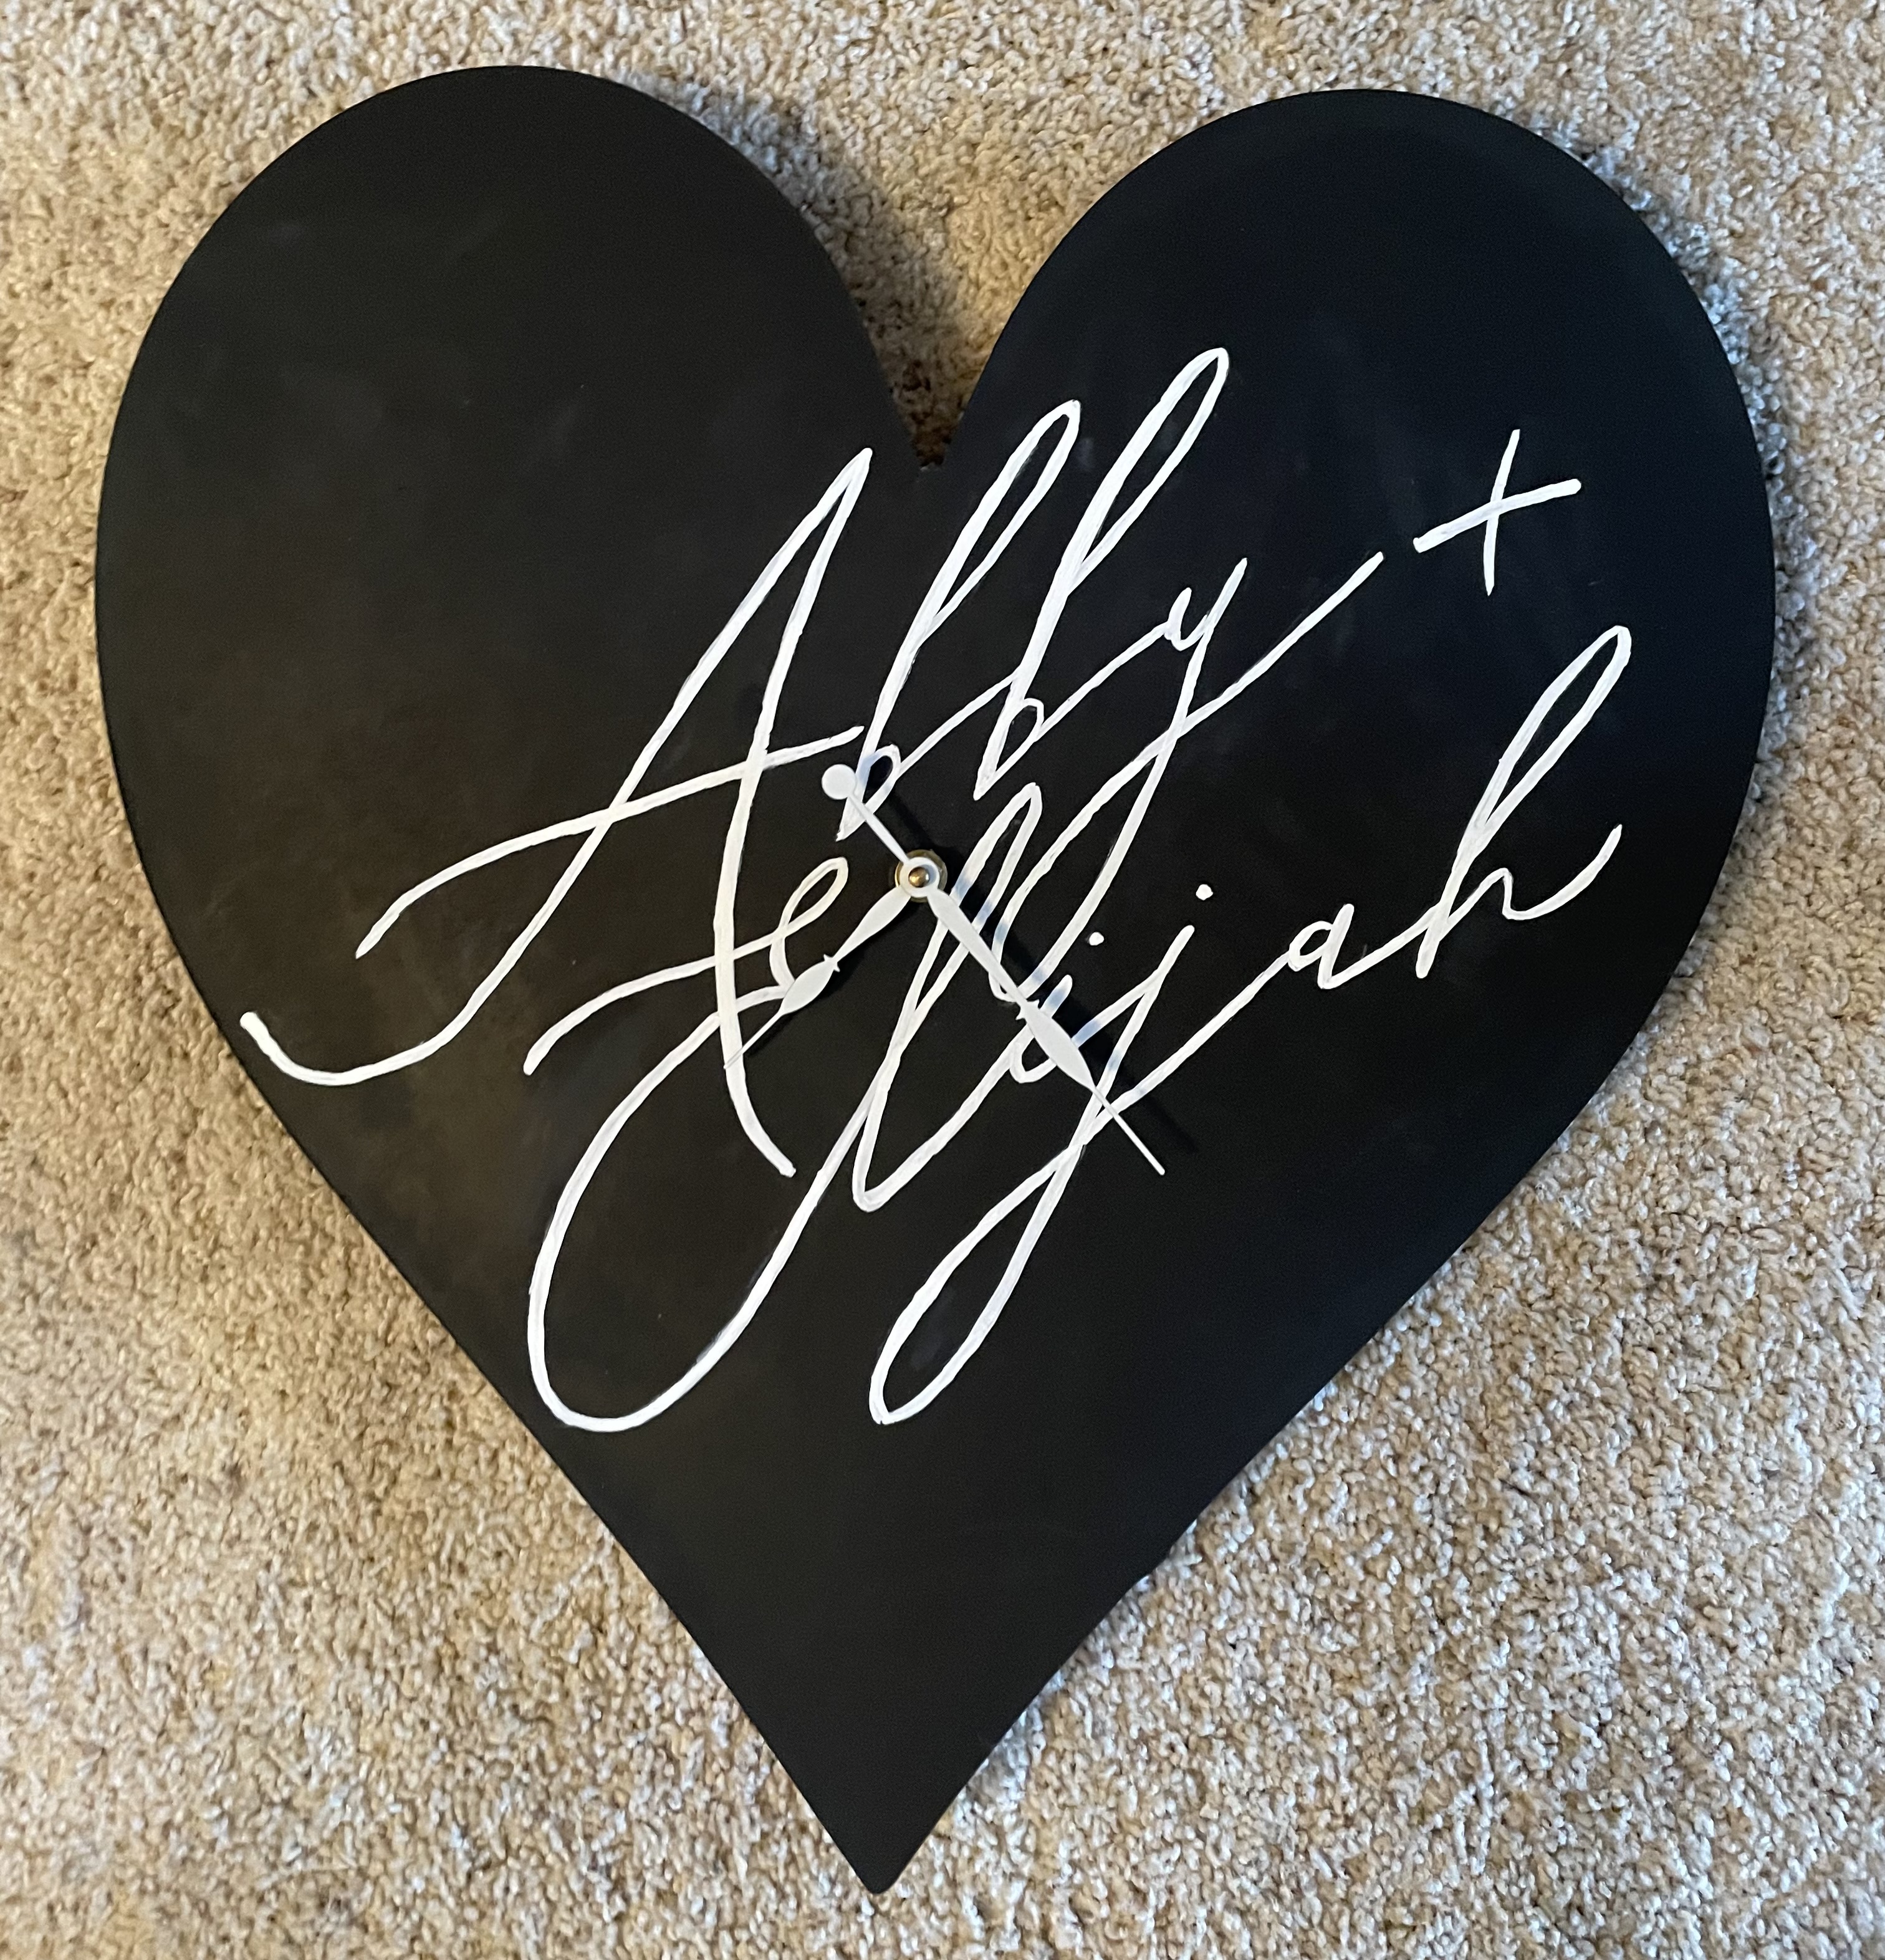 Abby +
Elijah